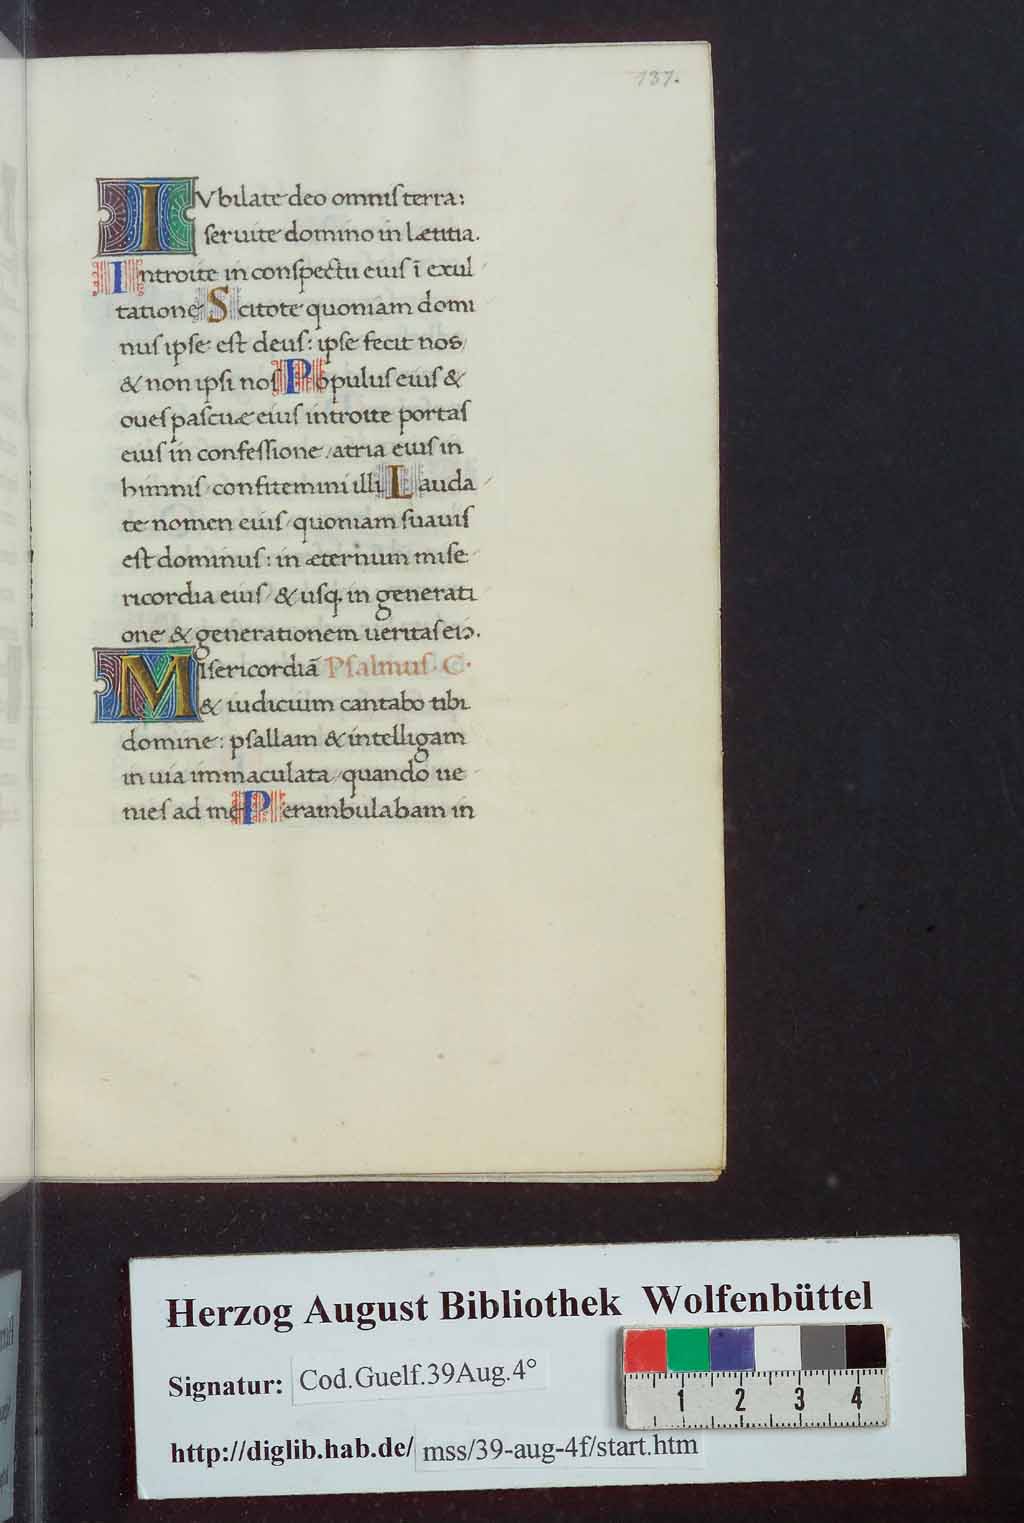 137.
IVbilate deo omnis terra:
seruite domino in lætitia.
Introite in conspectu eius ī exul
tatione Scitote quoniam domi
nus ipse est deus: ipse fecit nos
& non ipsi nos Populus eius &
oues pascuæ eius introite portas
eius in confessione atria eius in
himnis confitemini illi Lauda
te nomen eius quoniam suauis
est dominus: in æternum mise
ricordia eius & usq. in generati
one & generationem ueritas eiꝰ.
Misericordiā Psalmus C.
& iudicium cantabo tibi
domine: psallam & intelligam
in uia immaculata quando ue
nies ad me Perambulabam in
Herzog August Bibliothek Wolfenbüttel
Signatur: Cod.Guelf.39Aug.4°
1 2 3 4
http://diglib.hab.de/ mss/39-aug-4f/start.htm